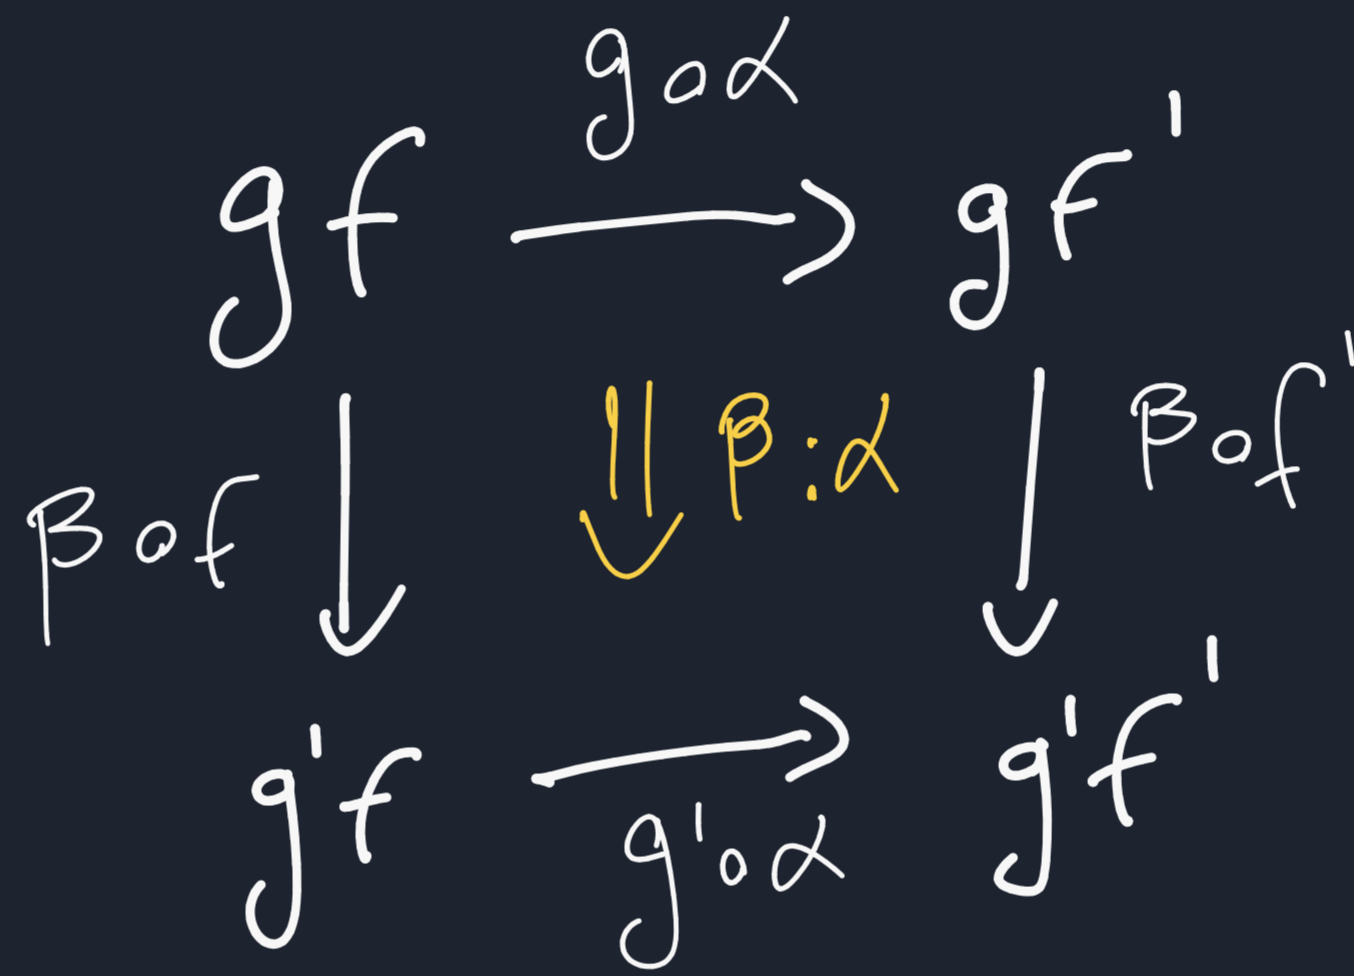 g∘α
gf gf'
β∘f β:α β∘f'
g'f g'f'
g'∘α